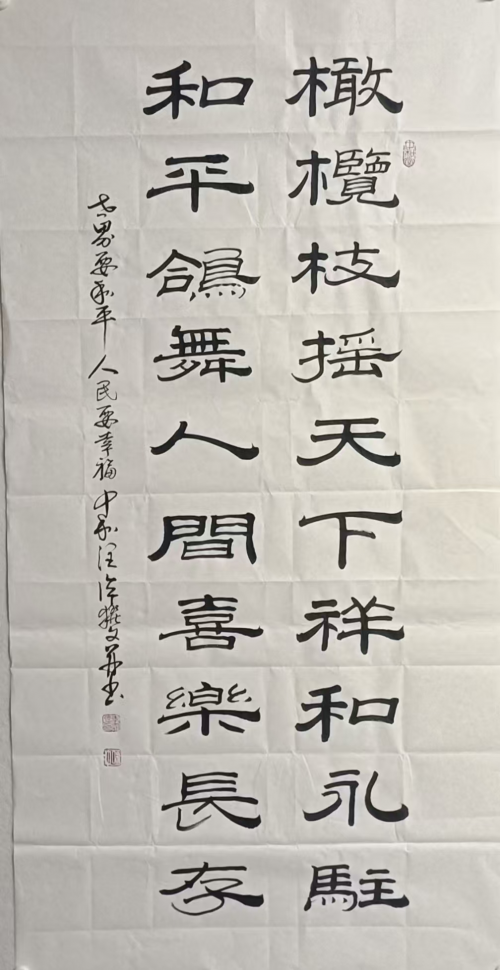 橄欖枝摇天下祥和永駐
和平鴿舞人間喜樂長存
世界要和平人民要幸福中和汪泮撰文并书